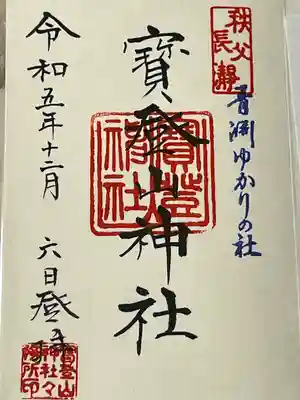 秩父
長瀞
青淵ゆかりの社
寳登山神社
寳登山
神社
令和五年十二月六日登拝
寳登山
神社々
務所印